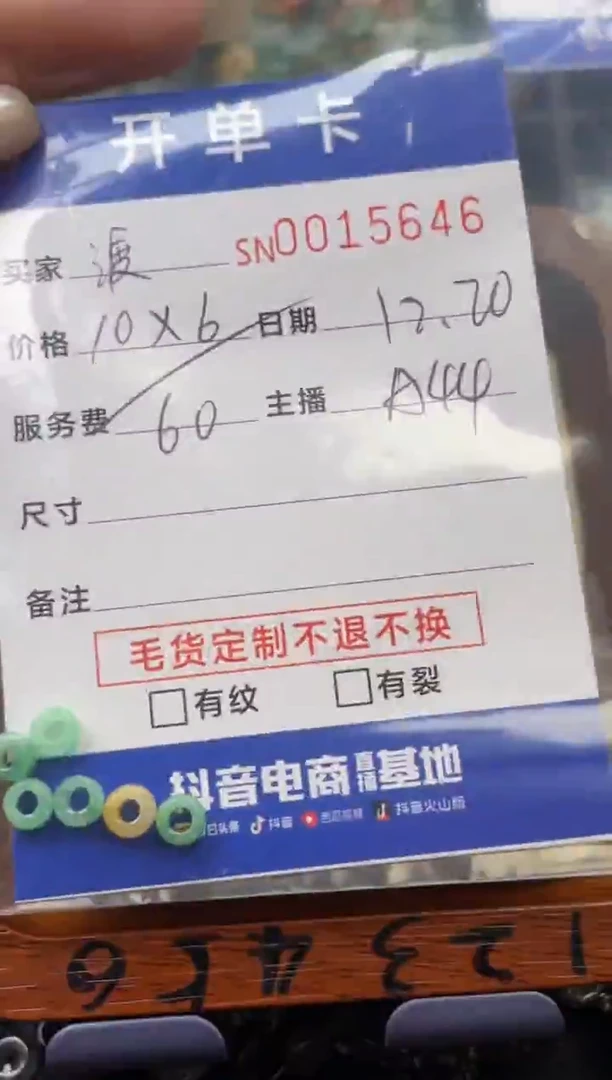 开单卡
买家 渡 SN0015646
价格 10×6 日期 12.20
服务费 60 主播 A44
尺寸
备注
毛货定制不退不换
□有纹 □有裂
抖音电商直播基地
日头条 抖音 西瓜视频 抖音火山版
1 2 3 4 5 6